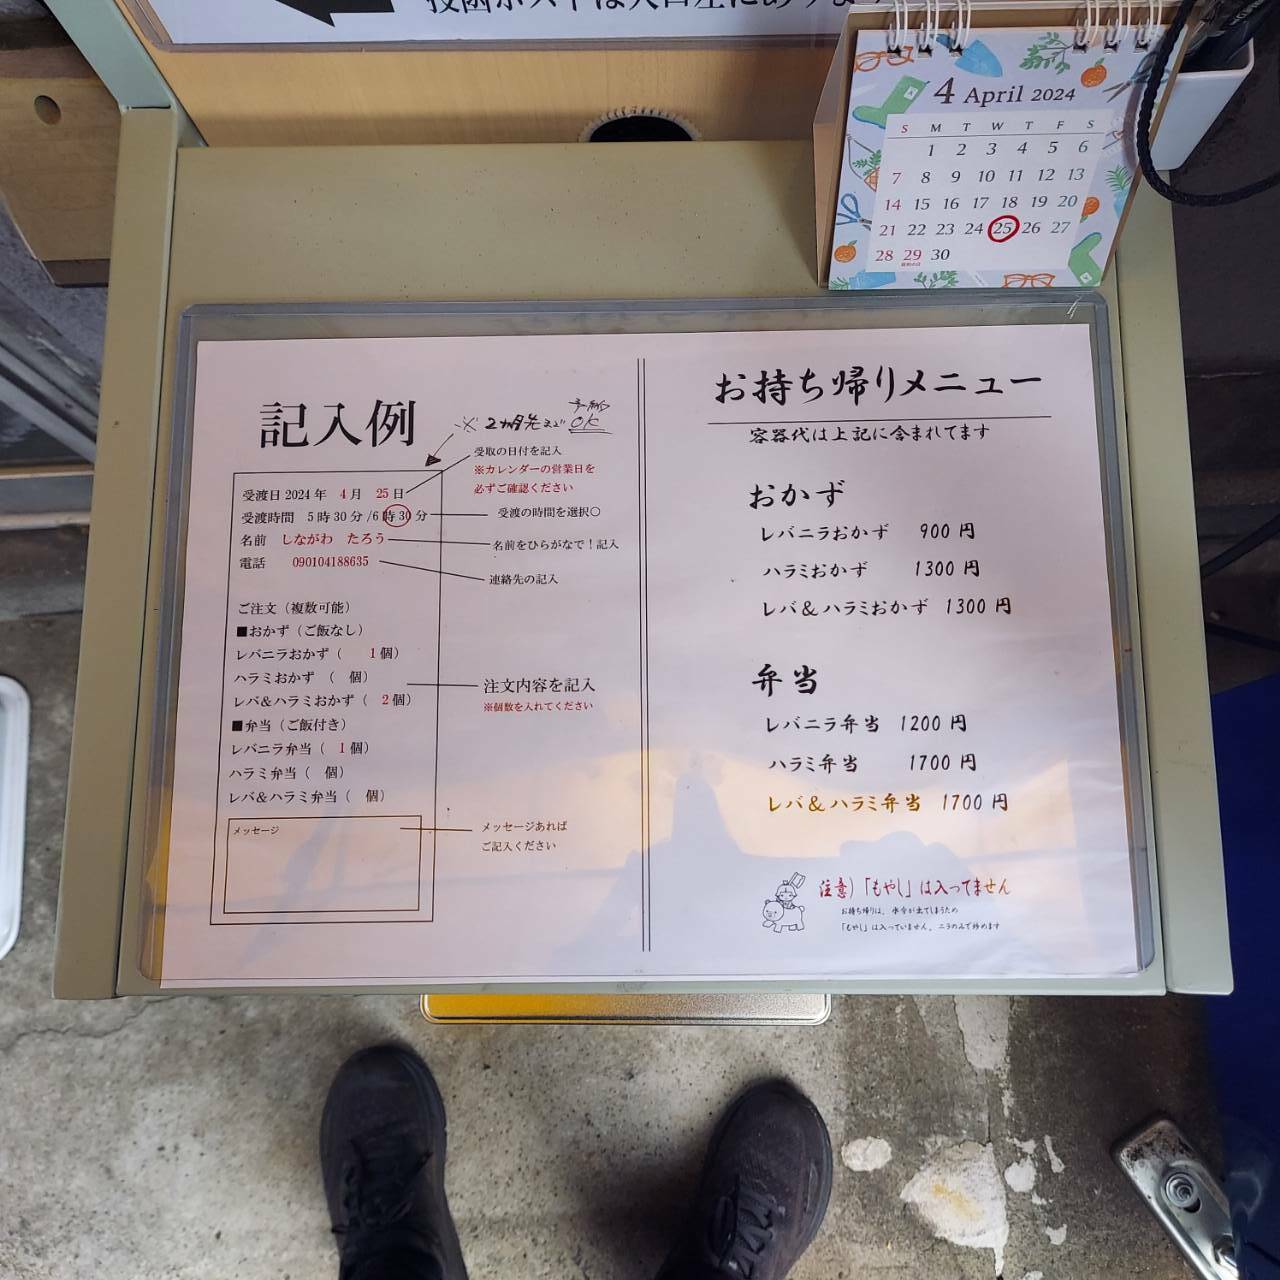 投函ポストは入口左にあります
4 April 2024
S M T W T F S
1 2 3 4 5 6
7 8 9 10 11 12 13
14 15 16 17 18 19 20
21 22 23 24 25 26 27
28 29 30
記入例
※2ヵ月先まで予約OK
受渡日 2024年 4月 25日
受渡時間 5時30分/6時30分
名前 しながわ たろう
電話 090104188635
ご注文（複数可能）
■おかず（ご飯なし）
レバニラおかず（ 1個）
ハラミおかず （ 個）
レバ&ハラミおかず（ 2個）
■弁当（ご飯付き）
レバニラ弁当（ 1個）
ハラミ弁当（ 個）
レバ&ハラミ弁当（ 個）
メッセージ
受取の日付を記入
※カレンダーの営業日を
必ずご確認ください
受渡の時間を選択〇
名前をひらがなで！記入
連絡先の記入
注文内容を記入
※個数を入れてください
メッセージあれば
ご記入ください
お持ち帰りメニュー
容器代は上記に含まれてます
おかず
レバニラおかず 900円
ハラミおかず 1300円
レバ&ハラミおかず 1300円
弁当
レバニラ弁当 1200円
ハラミ弁当 1700円
レバ&ハラミ弁当 1700円
注意）「もやし」は入ってません
お持ち帰りは、水分が出てしまうため
「もやし」は入っていません。ニラのみで炒めます